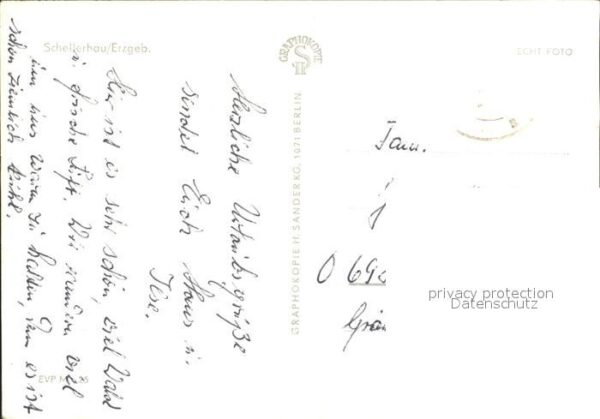 Schellerhau/Erzgeb.
ECHT FOTO
GRAPHOKOPIE
GRAPHOKOPIE H. SANDER KG, 1071 BERLIN
Herzliche Urlaubsgrüße
sendet Euch Hans u.
Ilse.
Hier ist es sehr schön, viel Wald
u. frische Luft. Wir wandern viel
um uns warm zu halten, denn es ist
schon ziemlich kühl.
Fam.
0692
Grün
EVP M
privacy protection
Datenschutz